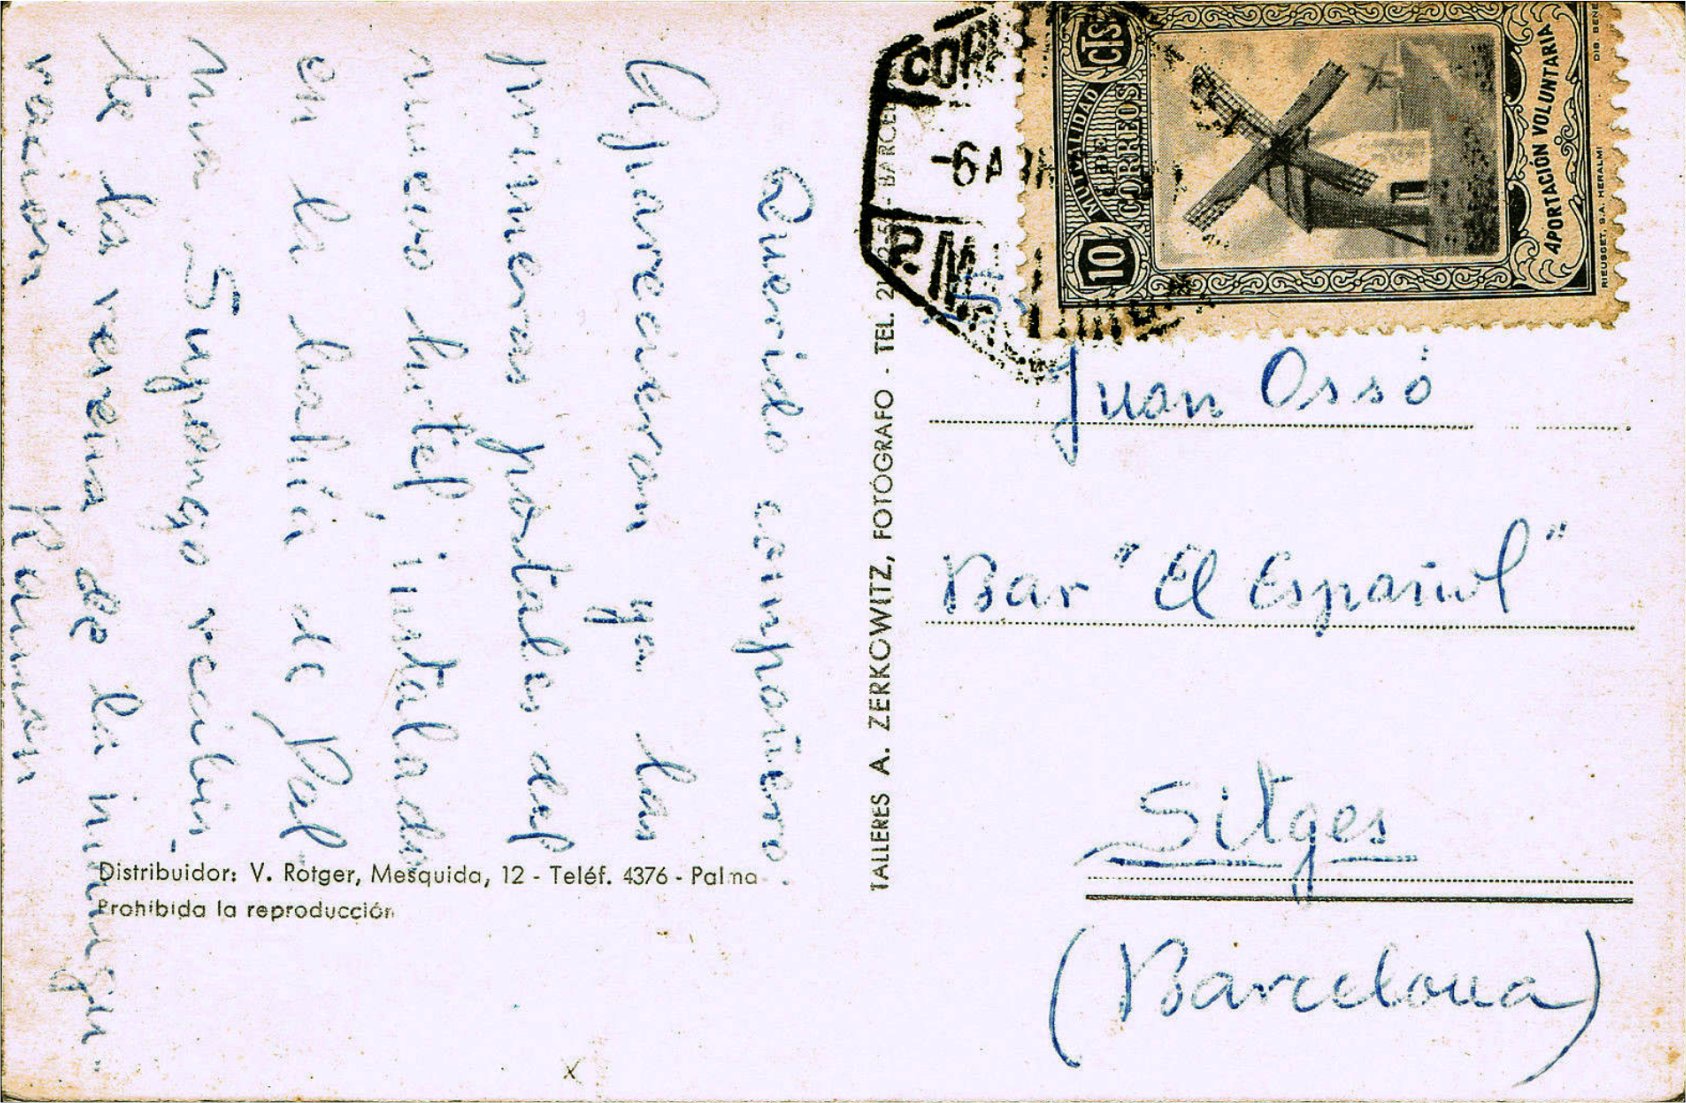 Querido compañero
Aparecieron ya las
primeras postales del
nuevo hotel, instalado
en la bahía de Pal-
ma. Supongo recibis-
te la reseña de la inaugu-
ración
Ramon
Distribuidor: V. Rotger, Mesquida, 12 - Teléf. 4376 - Palma
Prohibida la reproducción
TALLERES A. ZERKOWITZ, FOTÓGRAFO - TEL. 21 - BARCEL
-6
MUTUALIDAD
DE
CORREOS
10 CTS
APORTACION VOLUNTARIA
RIEUSSET, S.A. MERALMI
DIB. BENE
Juan Ossó
Bar "El Español"
Sitges
(Barcelona)